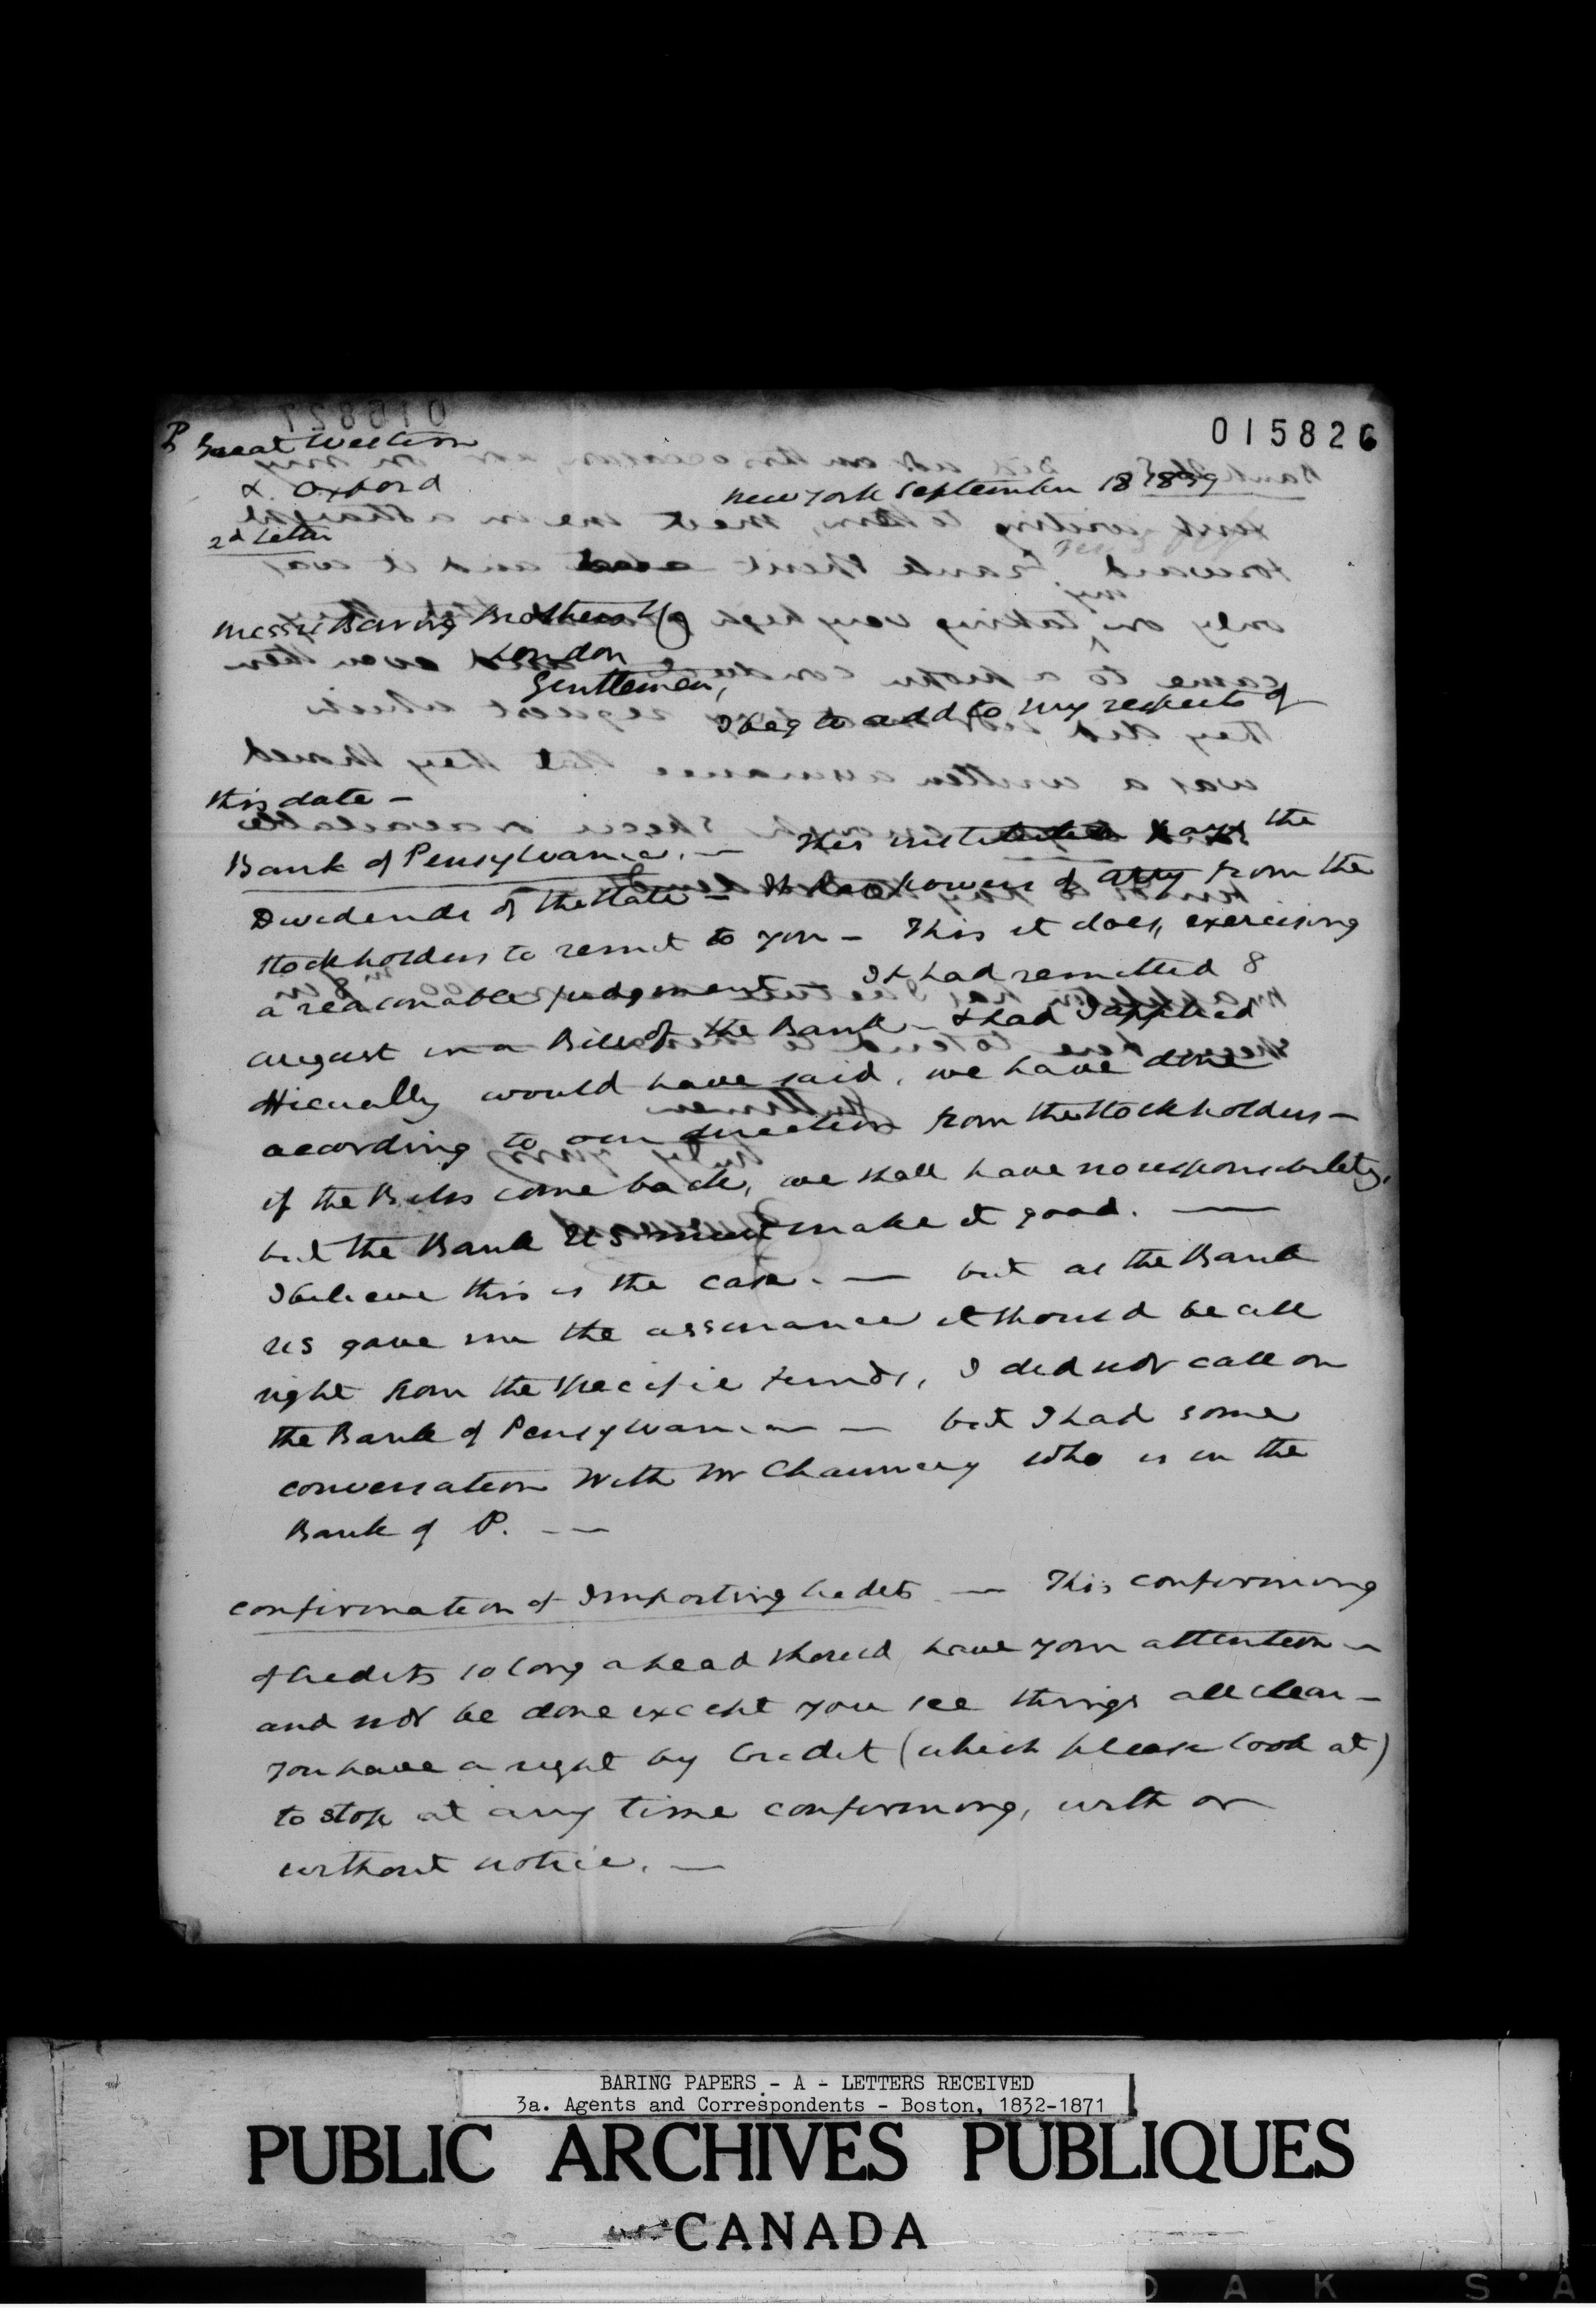 015826
P Great Western
& Oxford
New York September 18 1839
2d Letter
Messrs Baring Brothers & Co
London
Gentlemen,
I beg to add to my respects of
this date –
Bank of Pensylvania. — This institution pays the
Dividends of the State – It has powers of atty from the
Stockholders to remit to you – This it does, exercising
a reasonable judgement It had remitted 8
august in a Bill of the Bank – & had I applied
officially would have said, we have done
acording to our direction from the Stockholders –
if the Bills come back, we shall have no responsibility,
but the Bank US must make it good. —
I believe this is the case. — but as the Bank
US gave me the assurance it should be all
right from the specific funds, I did not call on
the Bank of Pensylvania — but I had some
conversation with Mr Chauncey who is in the
Bank of P. —
Confirmation of Importing Credits — This confirming
of Credits so long ahead should have your attention –
and not be done except you see things all clear –
you have a right by Credit (which please look at)
to stop at any time confirming, with or
without notice. —
BARING PAPERS - A - LETTERS RECEIVED
3a. Agents and Correspondents - Boston, 1832-1871
PUBLIC ARCHIVES PUBLIQUES
CANADA